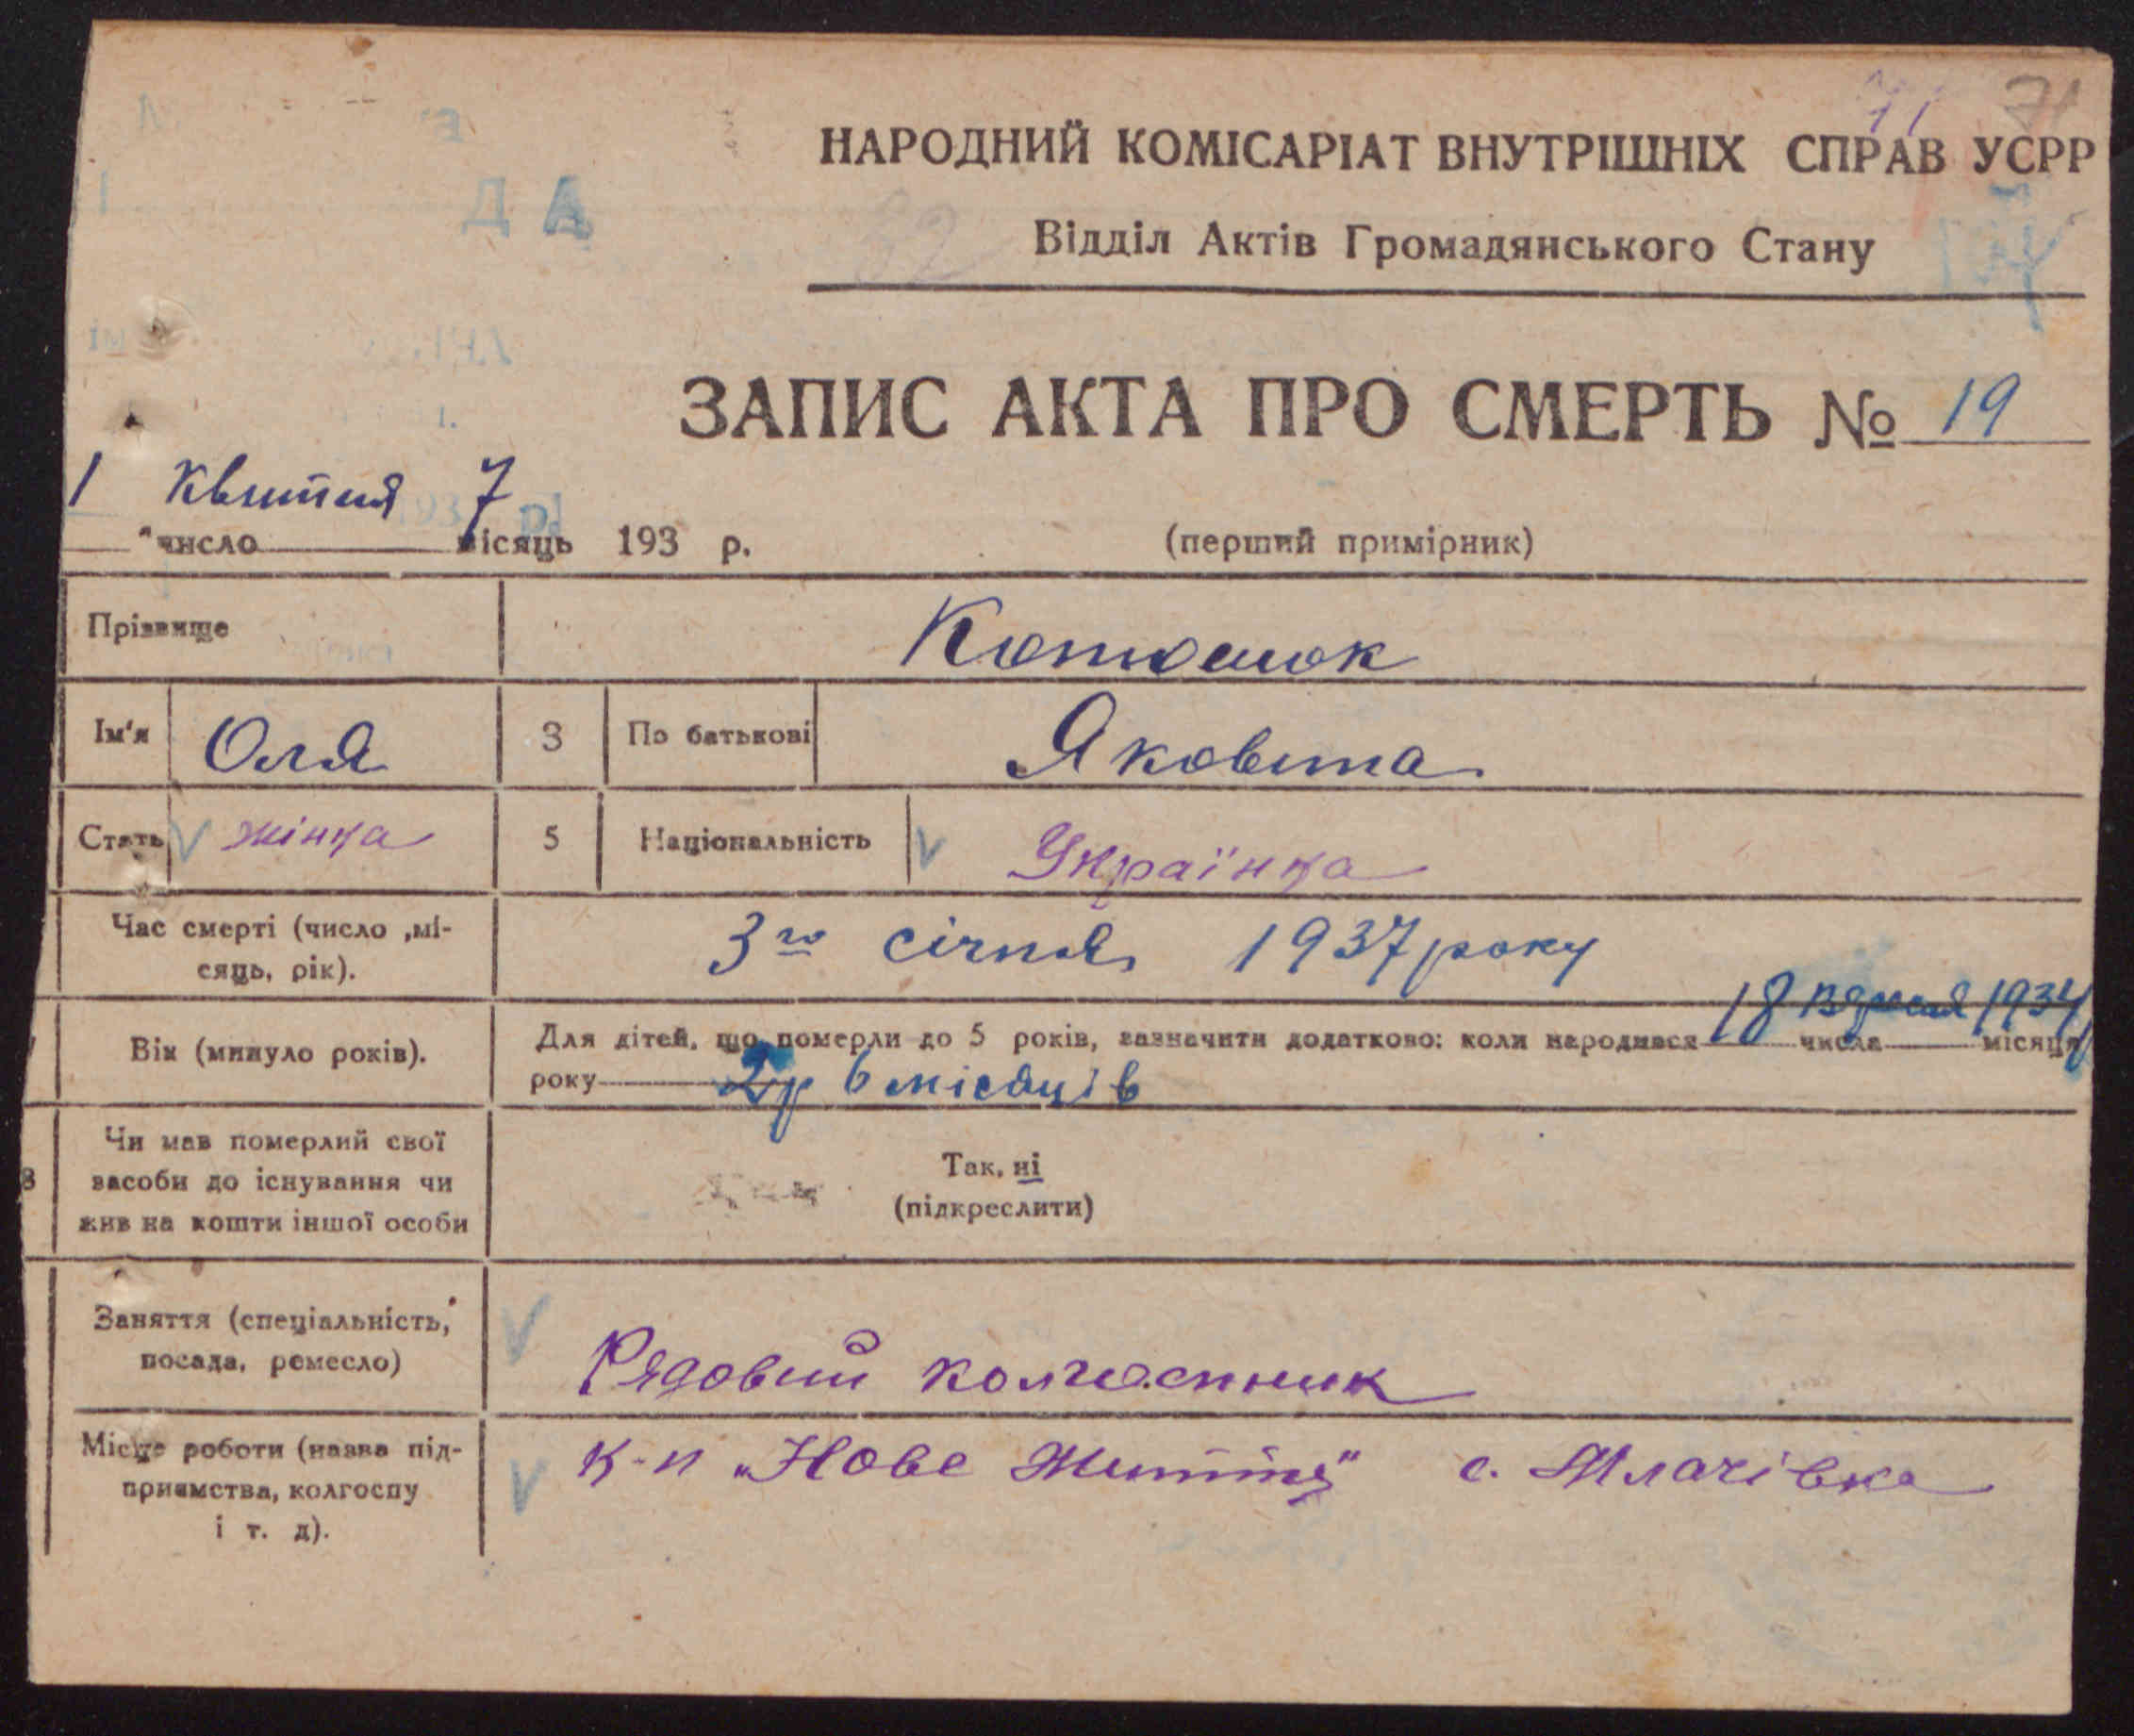 71
НАРОДНИЙ КОМІСАРІАТ ВНУТРІШНІХ СПРАВ УСРР
Відділ Актів Громадянського Стану
ЗАПИС АКТА ПРО СМЕРТЬ № 19
1 квітня 7
число місяць 193 р. (перший примірник)
Прізвище
Ім'я Оля 3 По батькові Яковина
Стать жінка 5 Національність Українка
Час смерті (число ,мі-
сяць, рік).
3го січня 1937 року
Вік (минуло років).
Для дітей, що померли до 5 років, зазначити додатково: коли народився 18 числа місяця 1934
року 2р 6 місяців
8
Чи мав померлий свої
засоби до існування чи
жив на кошти іншої особи
Так, ні
(підкреслити)
Заняття (спеціальність,
посада, ремесло)
Рядовий колгоспник
Місце роботи (назва під-
приямства, колгоспу
і т. д).
к-п „Нове Життя" с. Млачівка